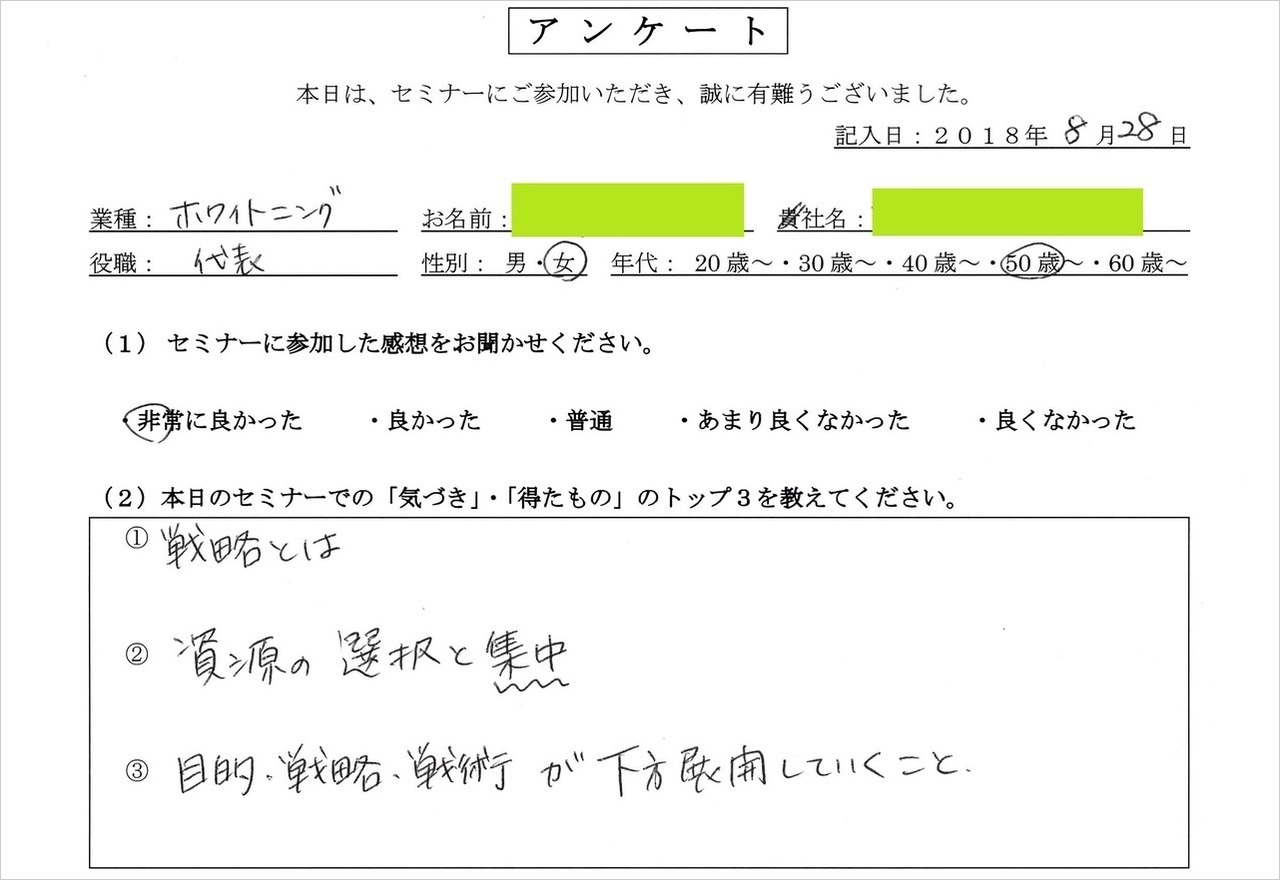 アンケート
本日は、セミナーにご参加いただき、誠に有難うございました。
記入日：２０１８年 8 月 28 日
業種： ホワイトニング お名前： 貴社名：
役職： 代表 性別： 男・女 年代： 20 歳～・30 歳～・40 歳～・50 歳～・60 歳～
（１） セミナーに参加した感想をお聞かせください。
・非常に良かった ・良かった ・普通 ・あまり良くなかった ・良くなかった
（２）本日のセミナーでの「気づき」・「得たもの」のトップ３を教えてください。
① 戦略とは
② 資源の選択と集中
③ 目的、戦略、戦術が下方展開していくこと.